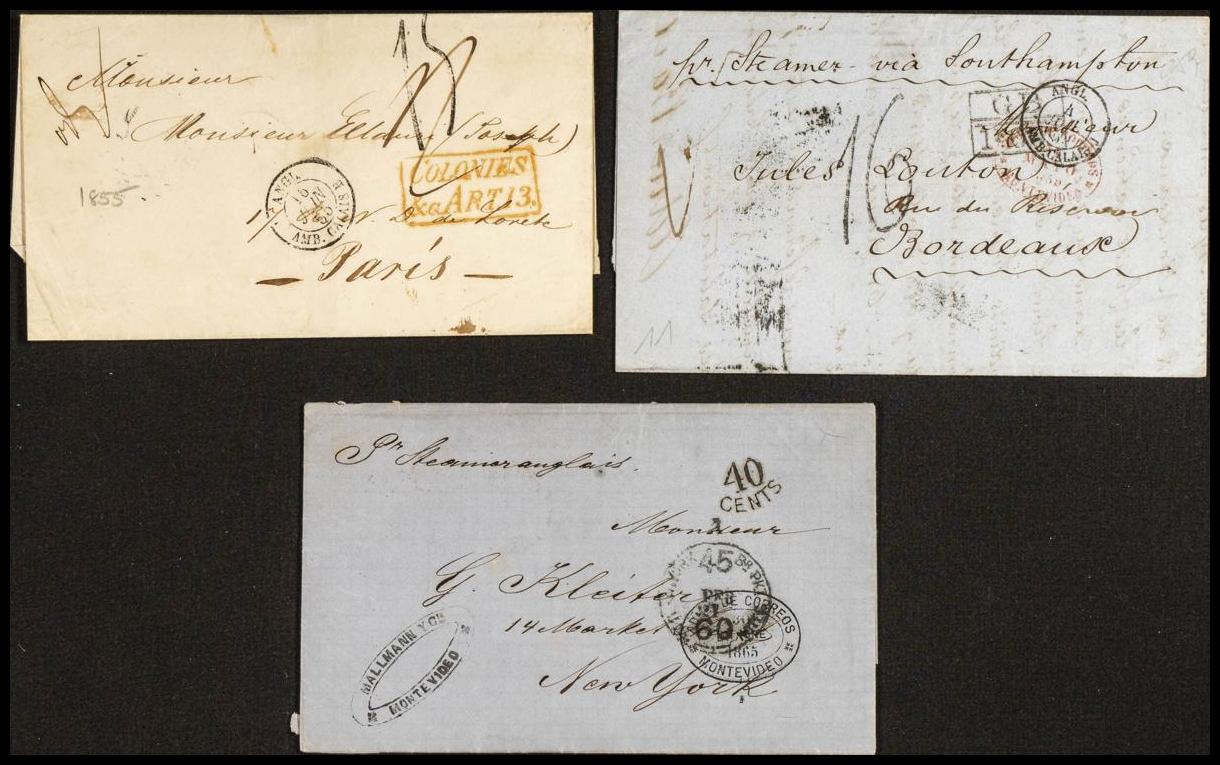 Monsieur
Monsieur (Joseph)
15
COLONIES
&c. ART.13.
1855
ANGL.
AMB. CALAIS
17 N. D. de Lorette
— Paris —
pr. Steamer via Southampton
ANGL.
4
AMB. CALAIS
MONTEVIDEO
Monsieur
Jules Louton
16
Rue du Réservoir
Bordeaux
11
Pr Steamer anglais.
40
CENTS
Monsieur
G. Kleiter
45
BR. PKT.
14 Market
60
DE CORREOS
1865
MONTEVIDEO
New York
MALLMANN Y Ca.
MONTEVIDEO